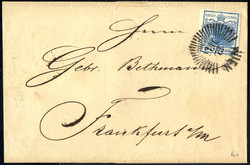 Herrn
Gebr. Bethmann
Frankfurt a/m